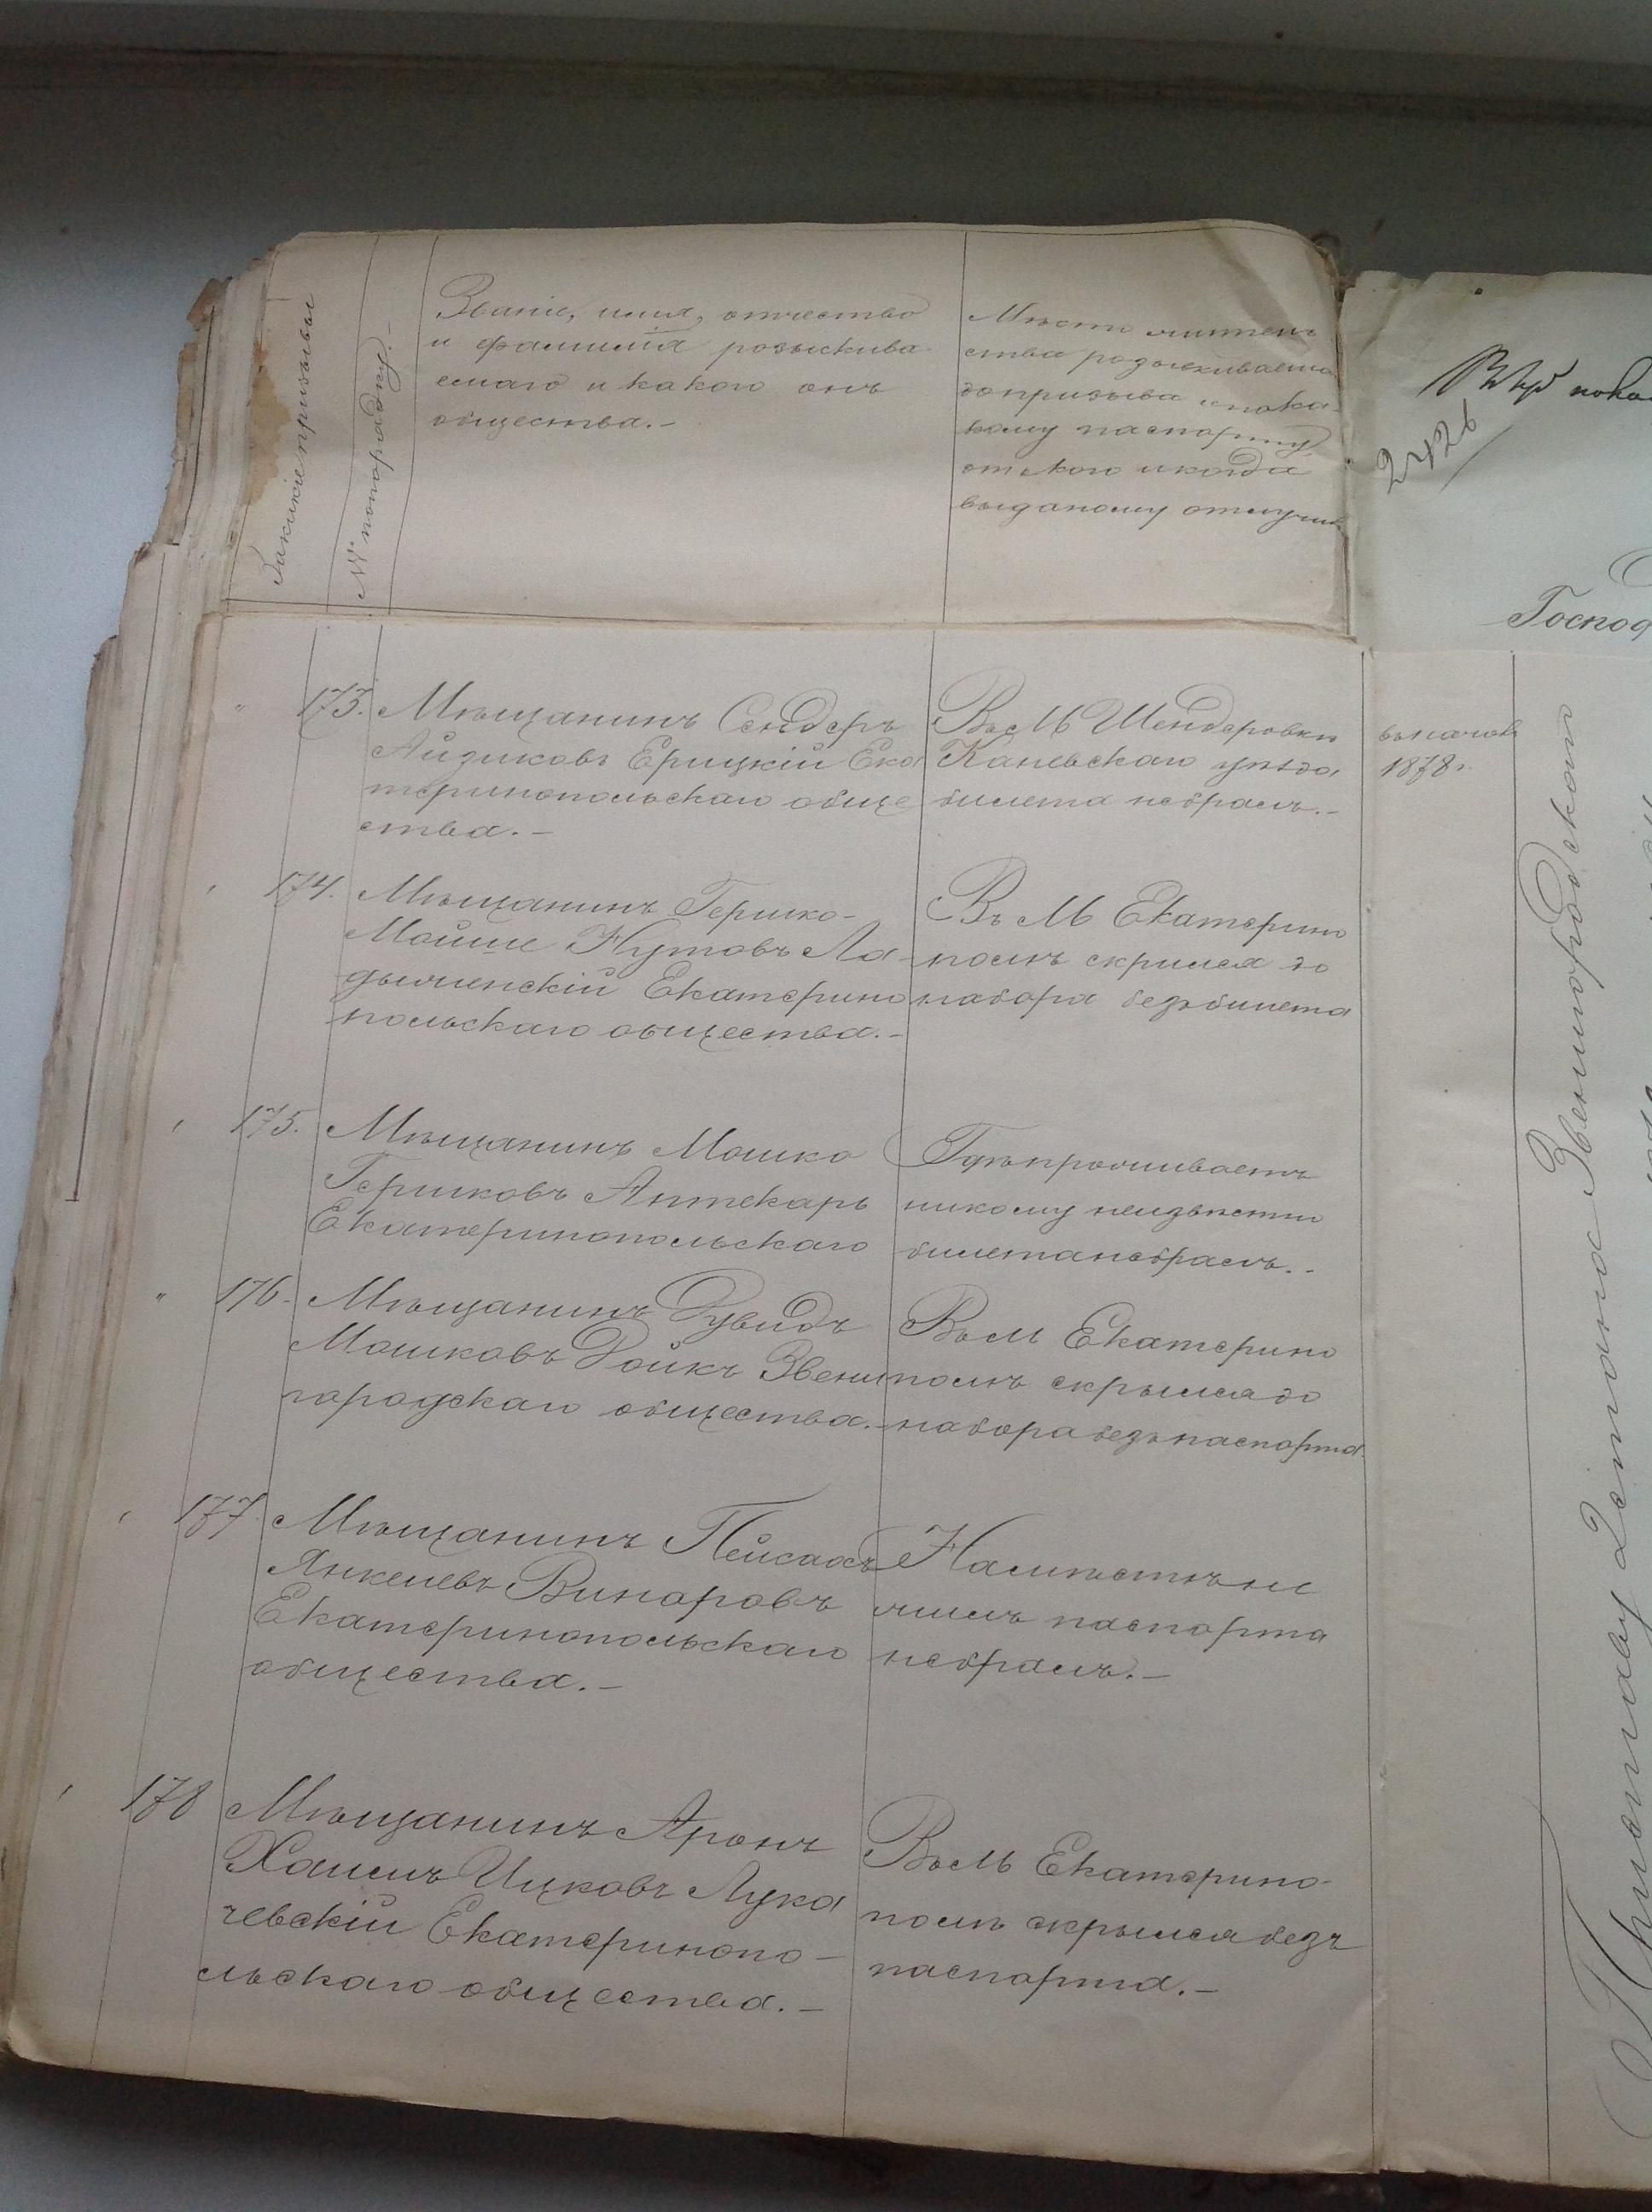 За какiе призывы
№ по порядку.-
Званiе, имя, отчество
и фамилiя розыскива
емаго и какого онъ
общества.-
Мѣсто житель
ства розыскиваемаго
до призыва и по ка-
кому паспорту
от кого и когда
выданому отлучил
2426
Господ
173. Мѣщанинъ Сендеръ
Айзиковъ Ерицкiй Ека
теринопольскаго обще
ства.-
Въ М Шендеровки
Каневскаго уѣзда,
билета не бралъ.-
въ началѣ
1878 г.
174. Мѣщанинъ Гершко-
Мойше Нутовъ Ла-
дыженскiй Екатерино
польскаго общества.-
Въ М Екатерино
полѣ скрился до
набора безъ билета
175. Мѣщанинъ Мошко
Гершковъ Аптекарь
Екатеринопольскаго
Гдѣ проживаетъ
никому неизвѣстно
билета не бралъ.-
176. Мѣщанинъ Дувидъ
Мошковъ Войкъ Звени
городскаго общества.-
Въ М Екатерино
полѣ скрылся до
набора безъ паспорта.
177. Мѣщанинъ Пейсахъ
Янкелевъ Винаровъ
Екатеринопольскаго
общества.-
На мѣстѣ не
жилъ паспорта
не бралъ.-
178 Мѣщанинъ Аронъ
Хаимъ Ицковъ Лука
чевскiй Екатеринопо-
льскаго общества.-
Въ М Екатерино-
полѣ скрылся безъ
паспорта.-
Звенигородскаго